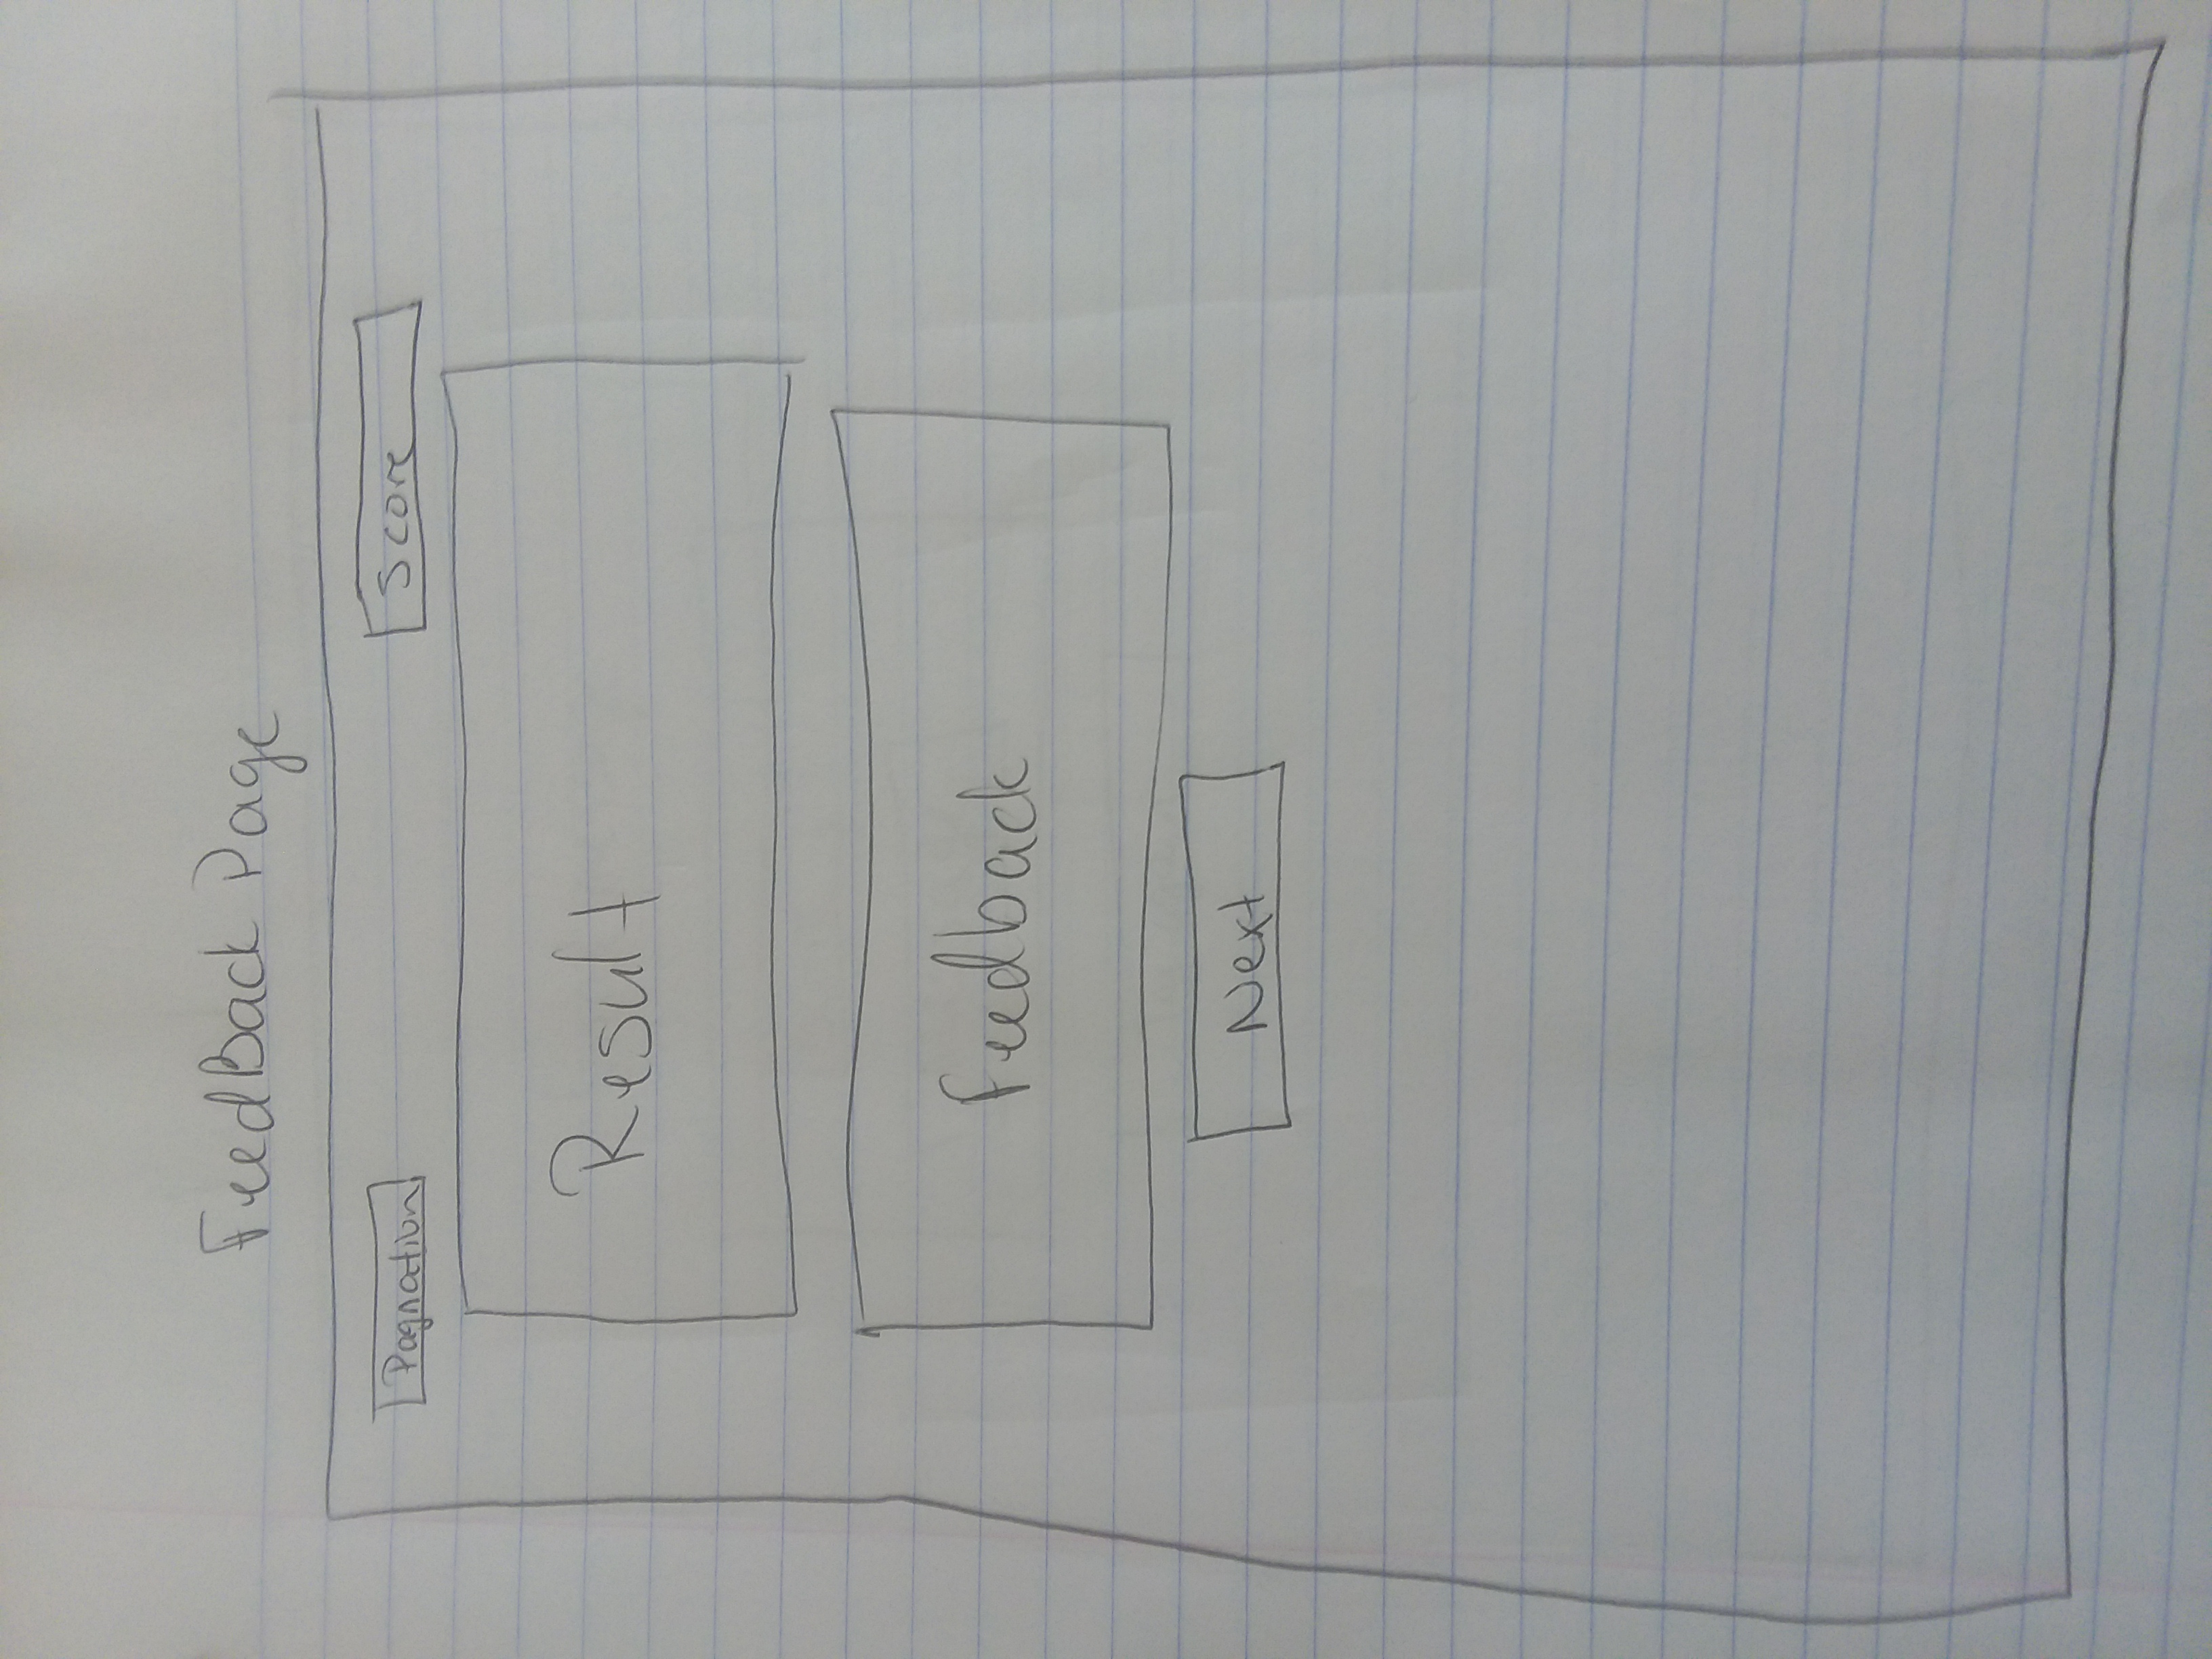 FeedBack Page
Pagnation
Score
Result
Feedback
Next